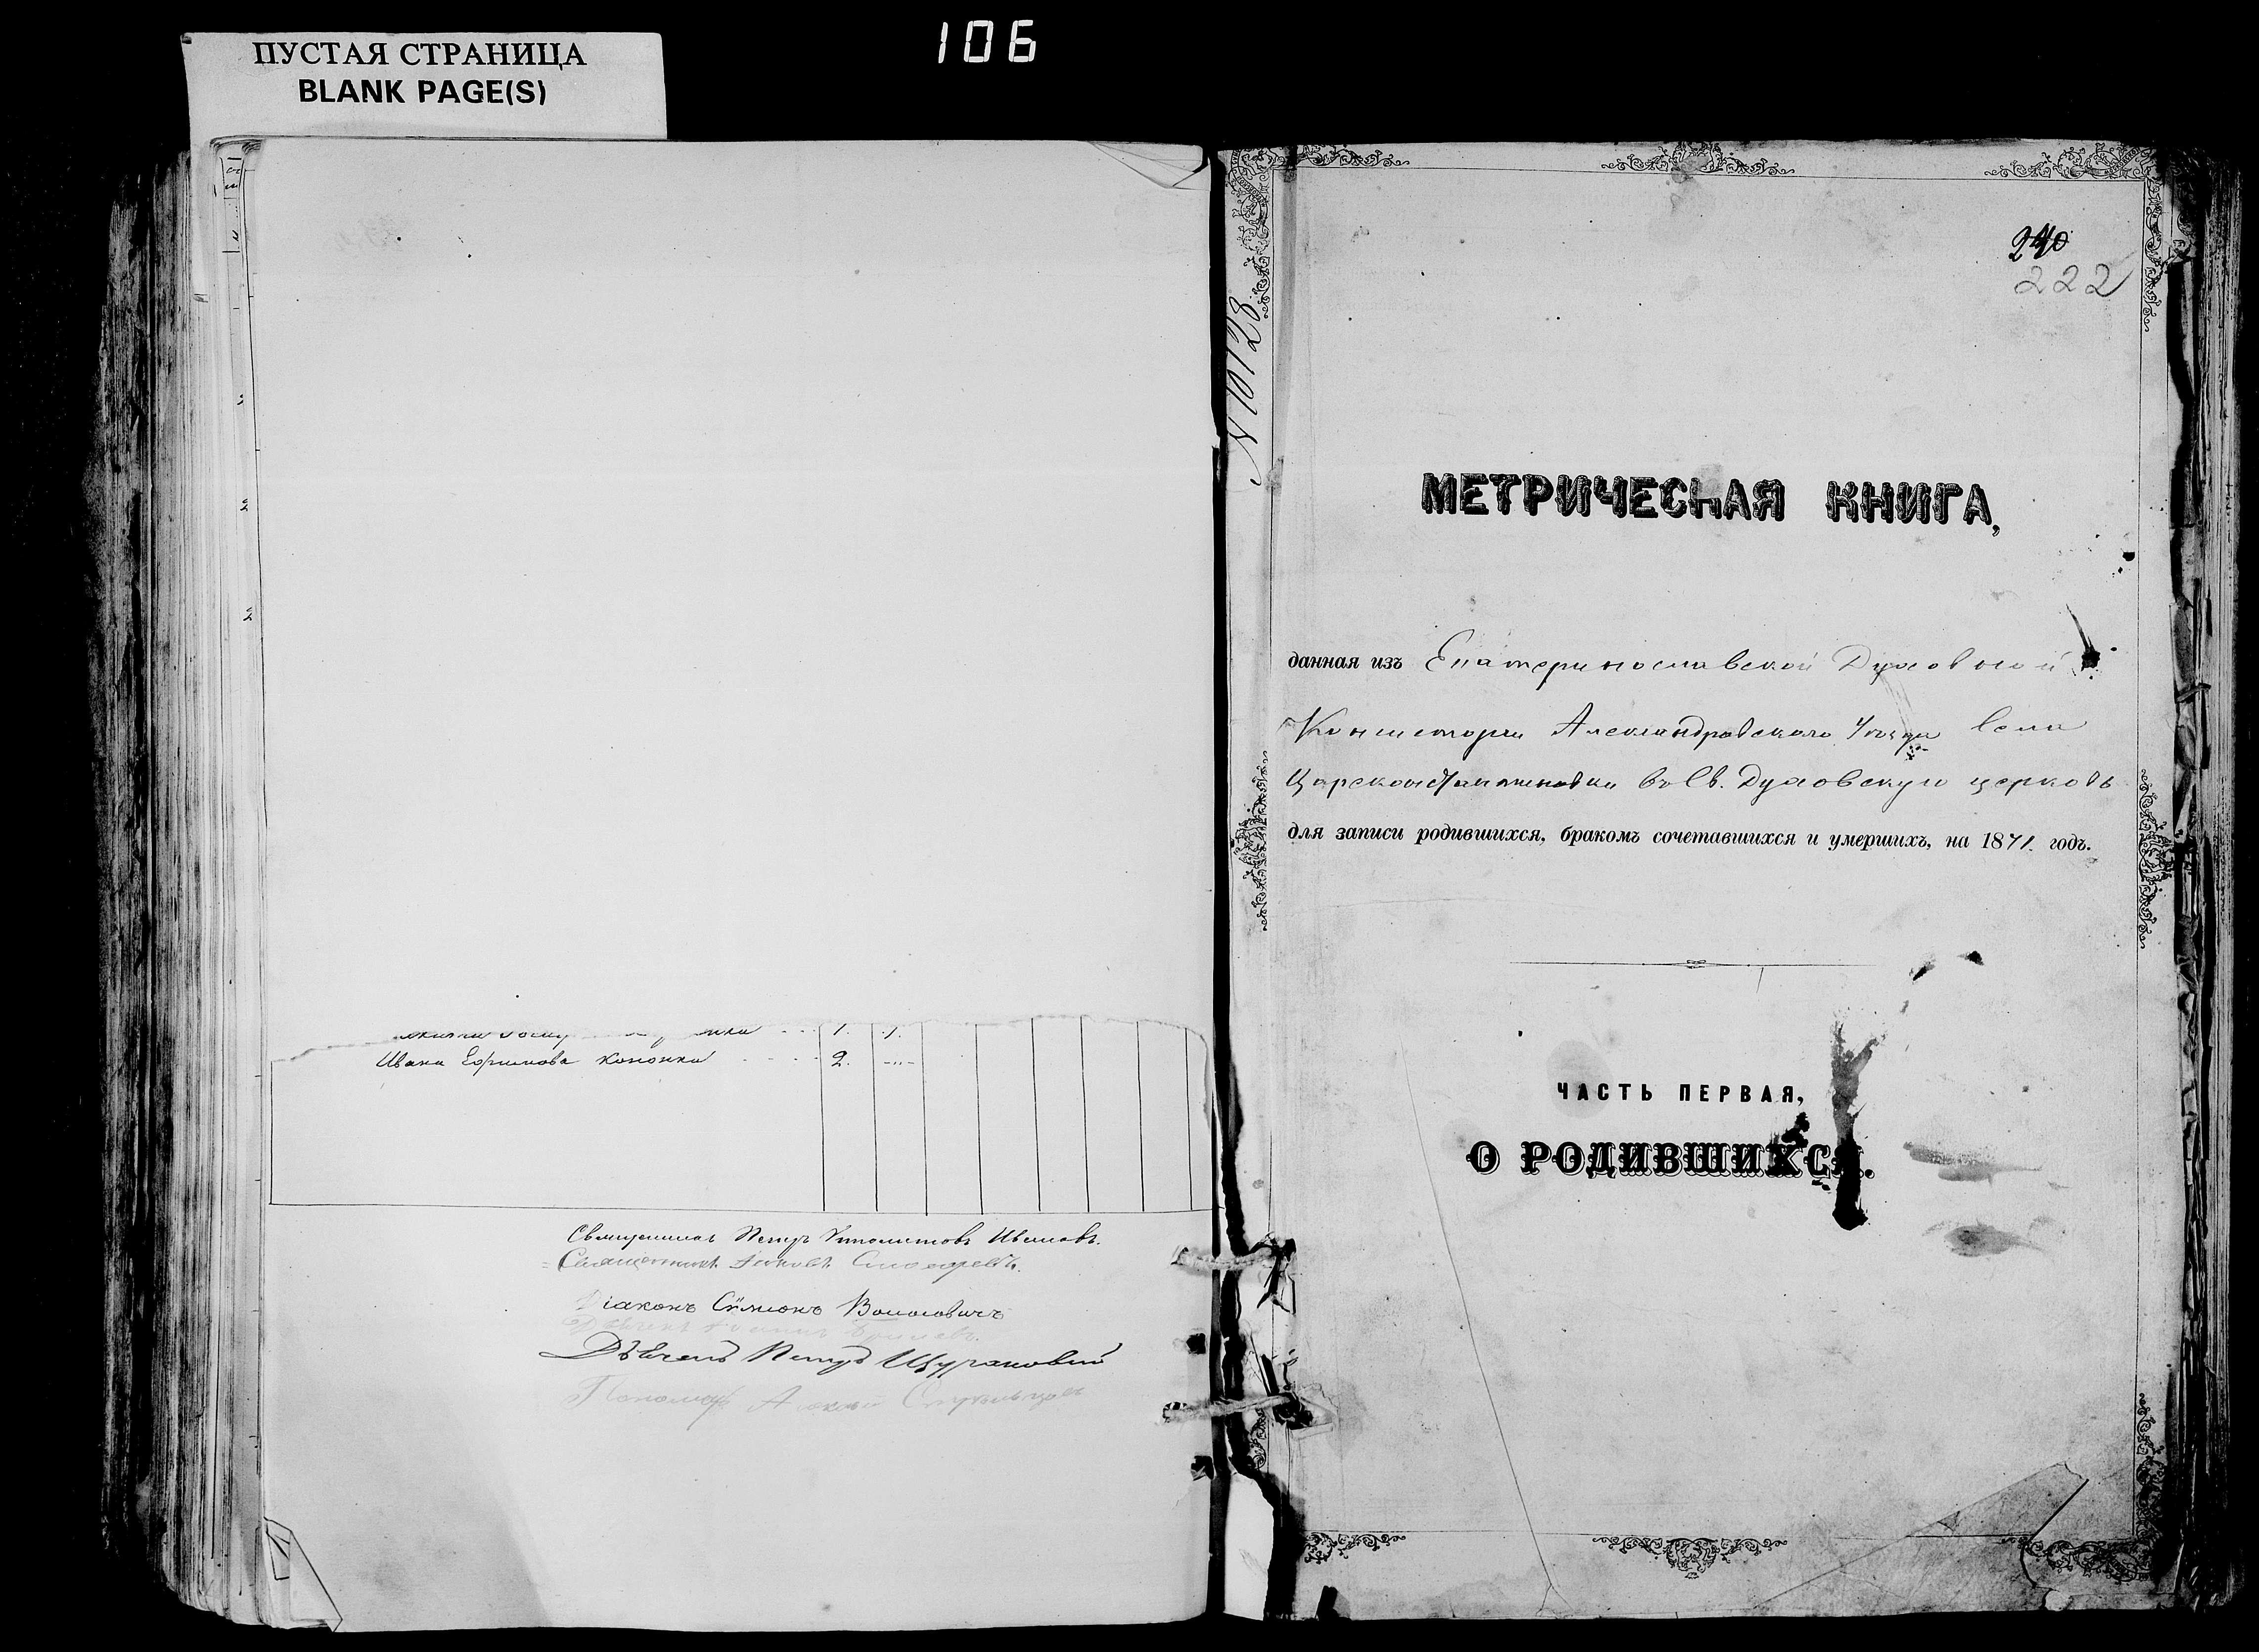 106
ПУСТАЯ СТРАНИЦА
BLANK PAGE(S)
1. 1.
Ивана Ефимова Кононка 2. -„-
Священникъ Петръ Ипполитовъ Ивановъ.
Священникъ Іаковъ
Діаконъ Сѵмеонъ Волосовичъ
Дьячекъ Петръ Щурановскій
Пономарь Алексѣй
N 10128
240
222
МЕТРИЧЕСКАЯ КНИГА,
данная изъ Екатеринославской Духовной
Консисторіи Александровскаго Уѣзда села
Царсконстантиновки въ Св. Духовскую церковь
для записи родившихся, бракомъ сочетавшихся и умершихъ, на 1871. годъ.
ЧАСТЬ ПЕРВАЯ,
О РОДИВШИХСЯ.